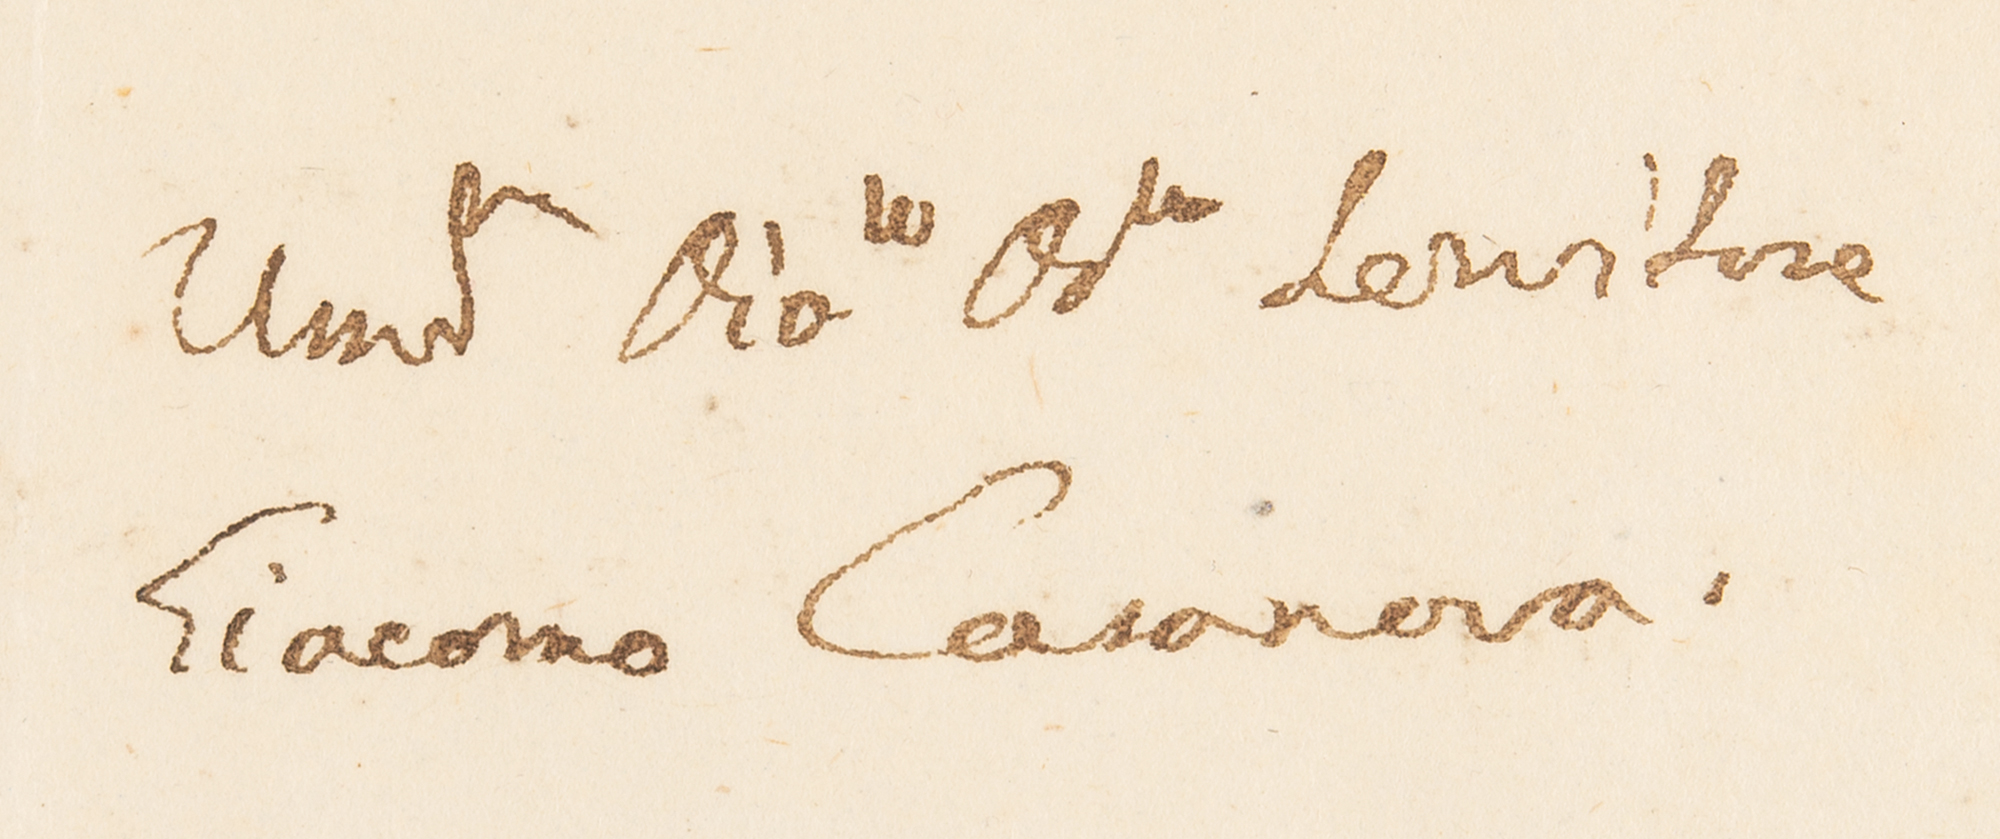 Um^o Dio^mo Ob^mo Servitore
Giacomo Casanova.